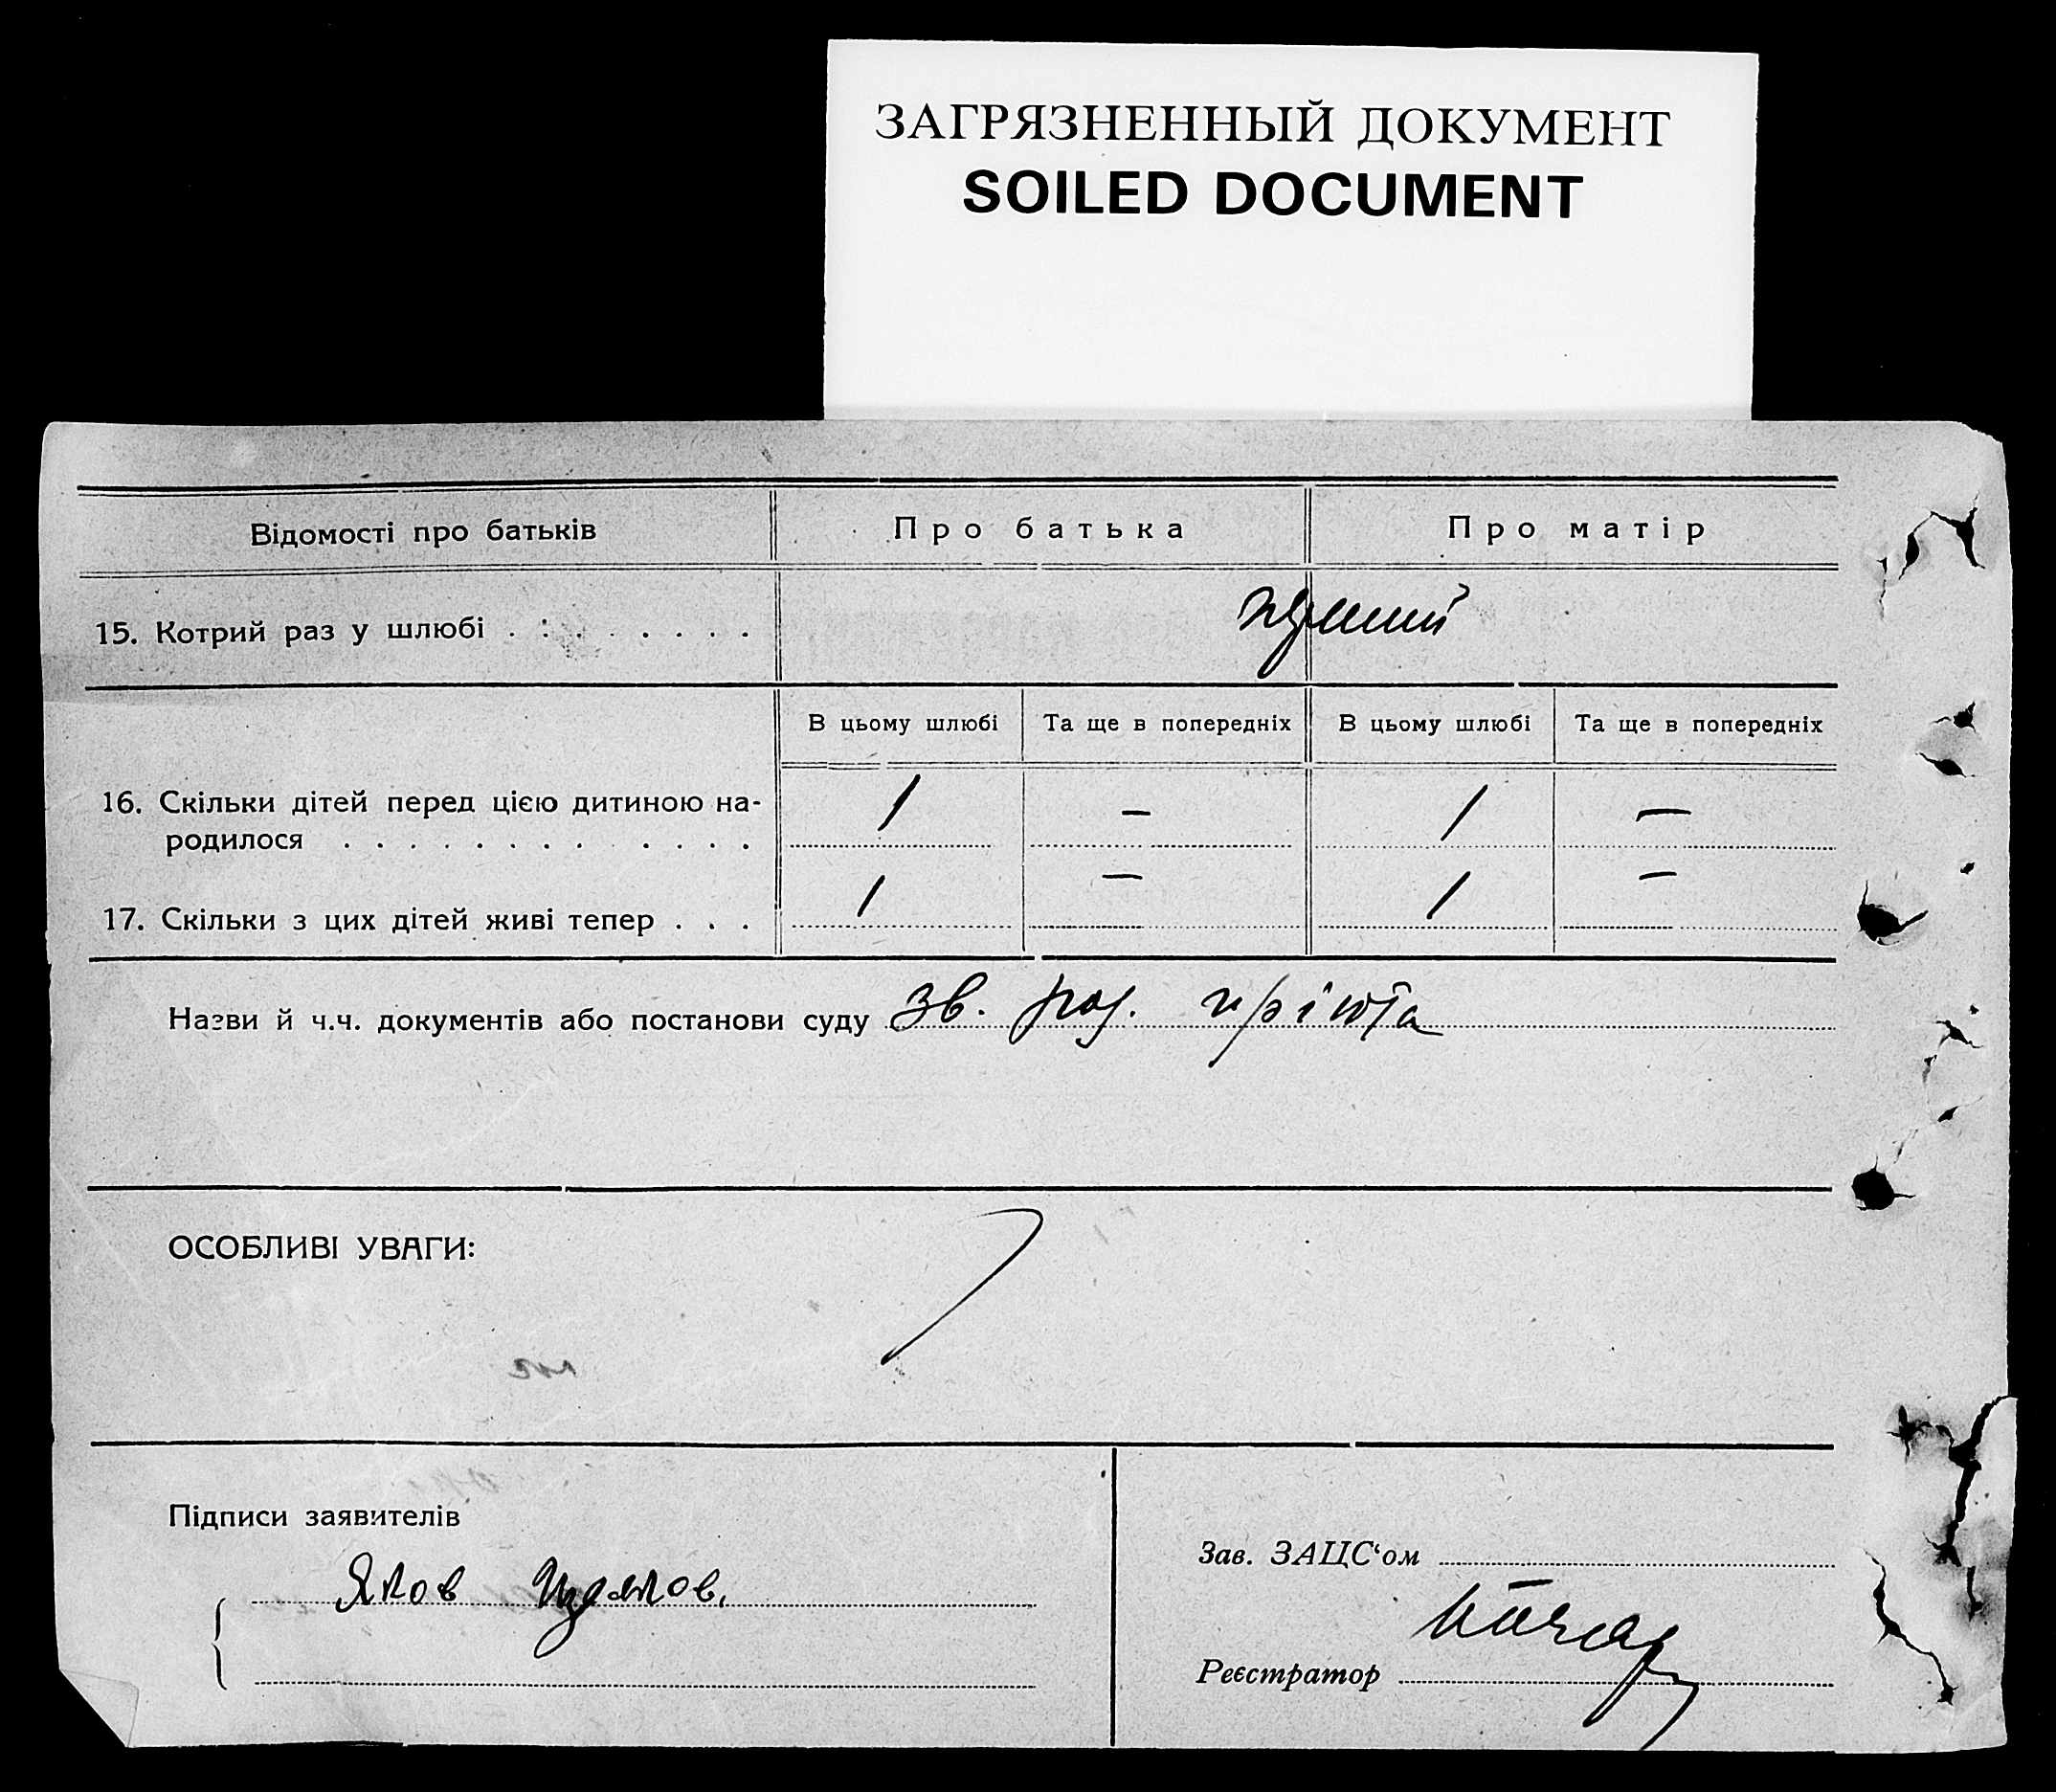 ЗАГРЯЗНЕННЫЙ ДОКУМЕНТ
SOILED DOCUMENT
Відомості про батьків Про батька Про матір
15. Котрий раз у шлюбі . . . . . . . . перший
В цьому шлюбі Та ще в попередніх В цьому шлюбі Та ще в попередніх
16. Скільки дітей перед цією дитиною на-
родилося . . . . . . . . . . . . 1 — 1 —
17. Скільки з цих дітей живі тепер . . . 1 — 1 —
Назви й ч.ч. документів або постанови суду зв. род. пріюта
ОСОБЛИВІ УВАГИ:
Підписи заявителів
Яков
Зав. ЗАЦС‘ом
Реєстратор